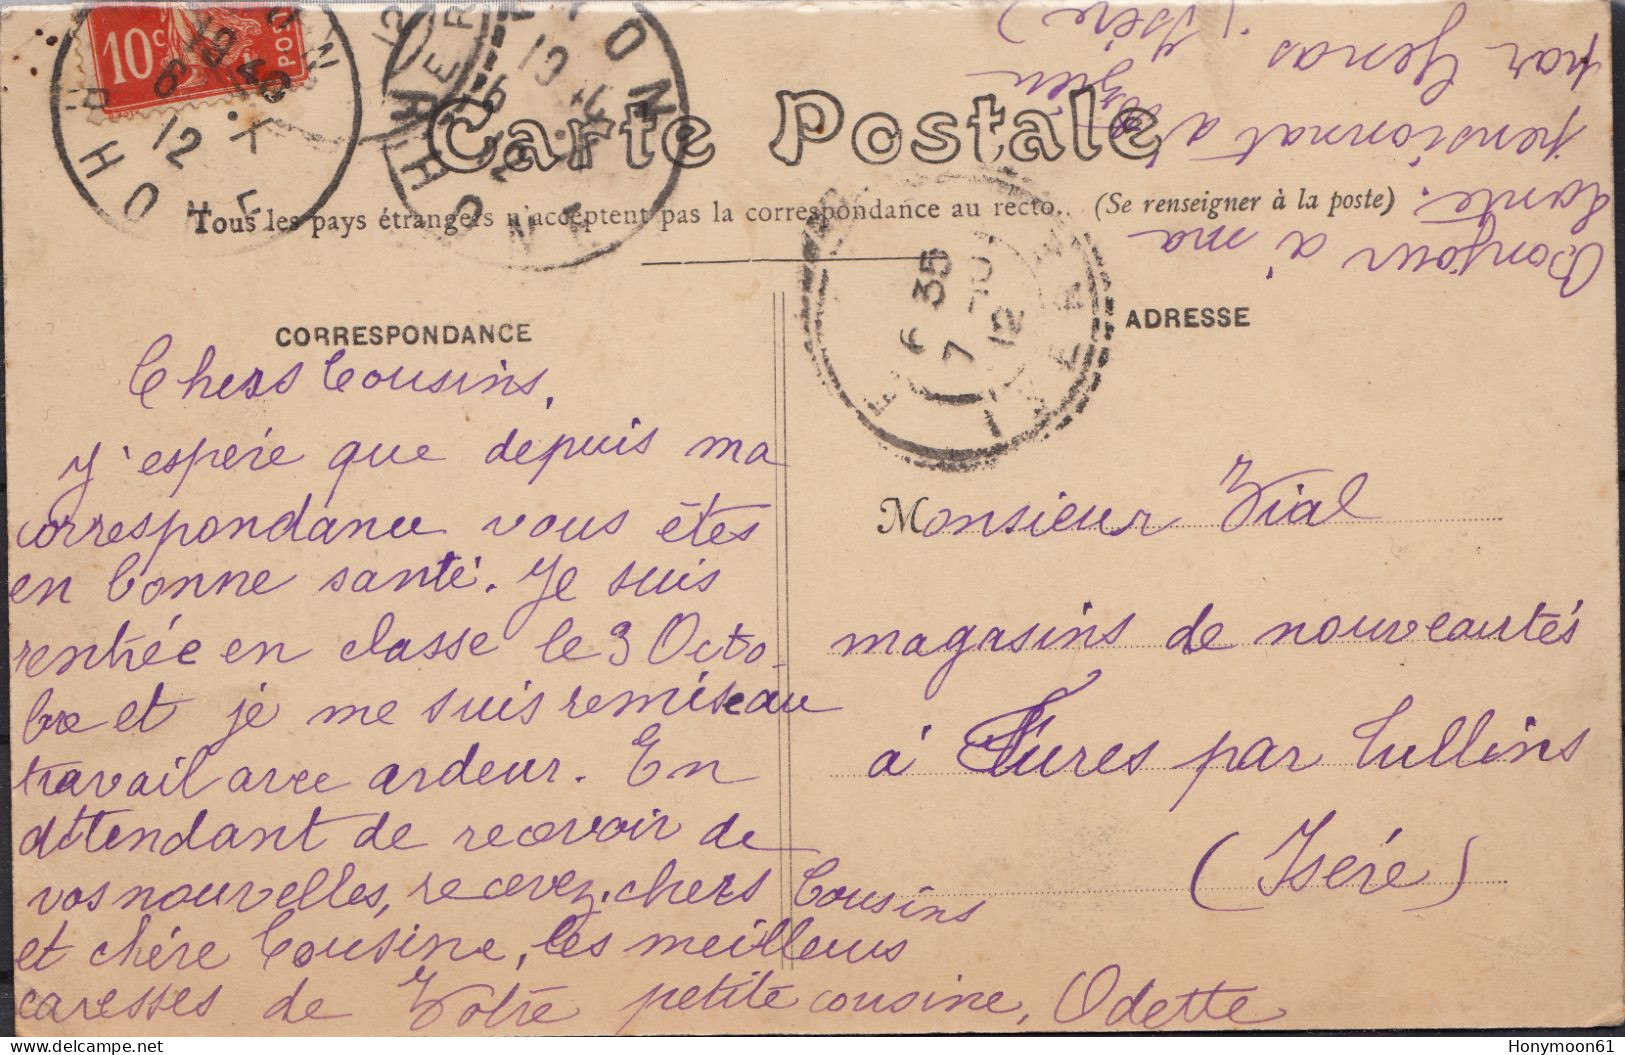 10c
POST
12
RHÔNE
LYON
6 35
7 -10
12
Carte Postale
Tous les pays étrangers n'acceptent pas la correspondance au recto. (Se renseigner à la poste)
CORRESPONDANCE
ADRESSE
Chers Cousins,
J'espère que depuis ma
correspondance vous êtes
en bonne santé. Je suis
rentrée en classe le 3 Octo-
bre et je me suis remise au
travail avec ardeur. En
attendant de recevoir de
vos nouvelles, recevez, chers Cousins
et chère Cousine, les meilleurs
caresses de Votre petite cousine, Odette
Monsieur Vial
magasins de nouveautés
à Fures par Tullins
(Isère)
Bonjour à ma
tante.
pensionnat à
par Genas. (Isère)
Honymoon61